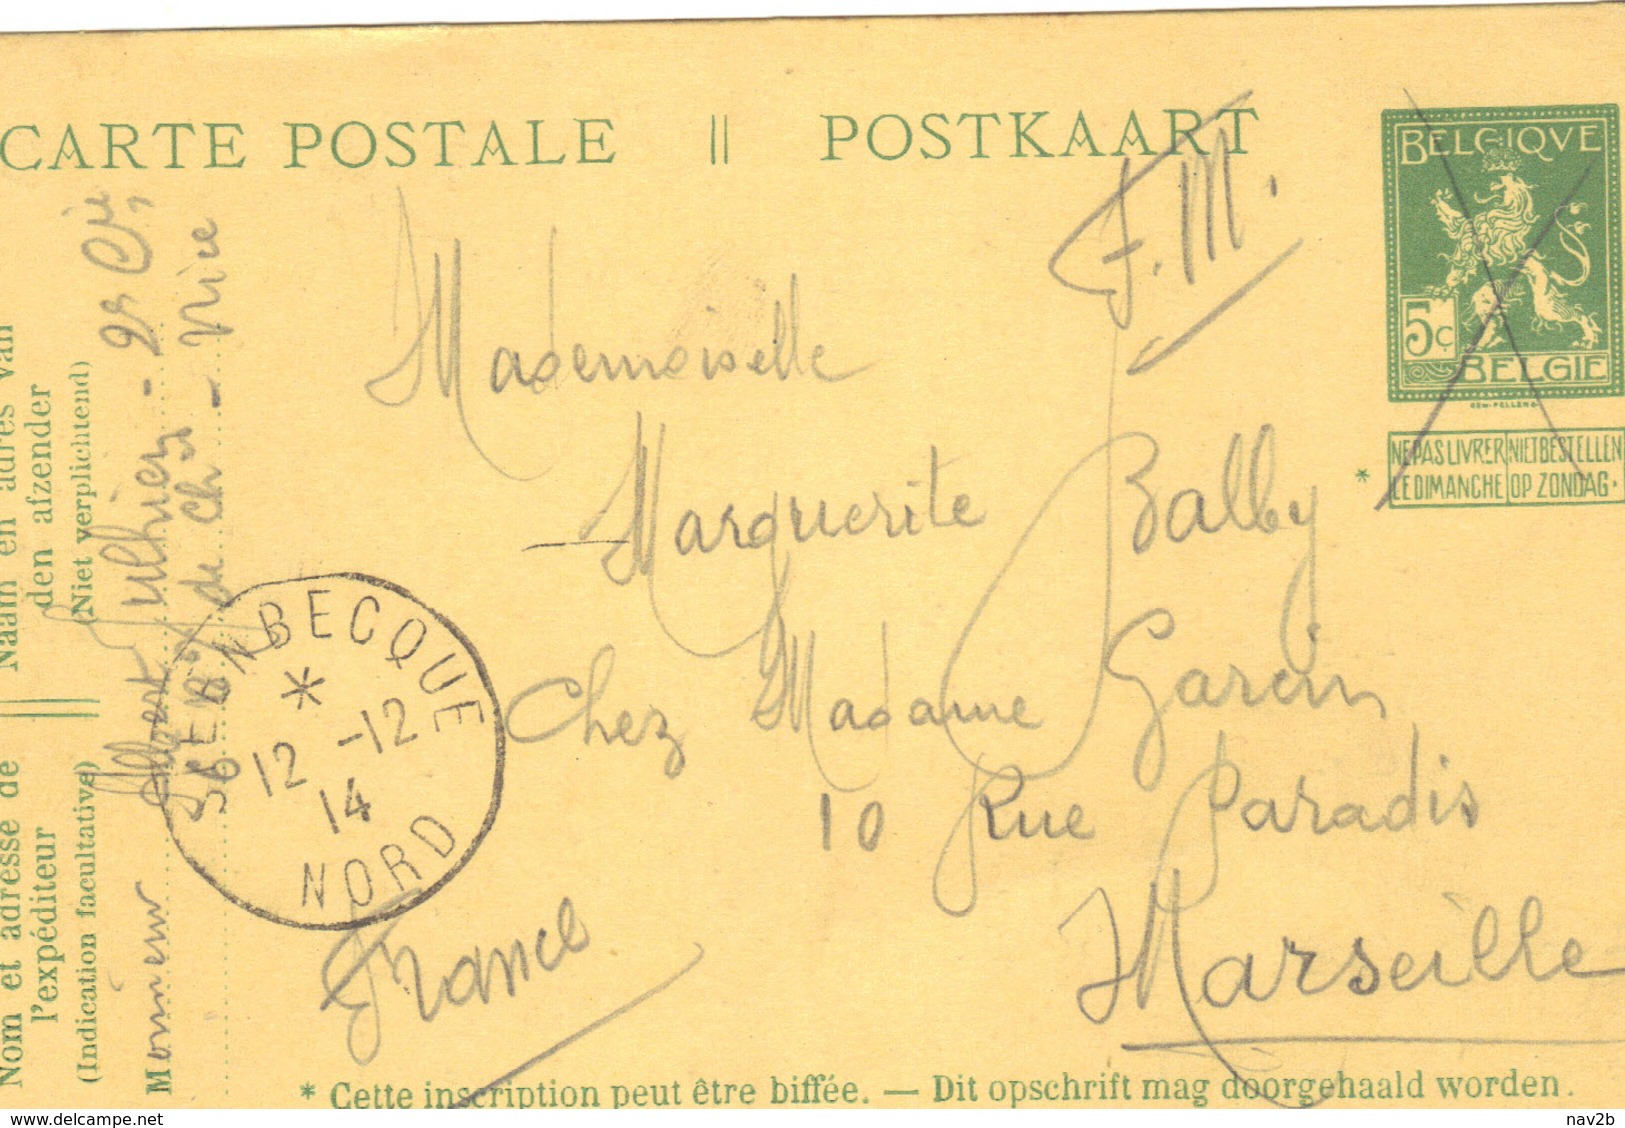 CARTE POSTALE || POSTKAART
F.M.
BELGIQVE
5c
BELGIE
* NE PAS LIVRER LE DIMANCHE
NIET BESTELLEN OP ZONDAG.
Mademoiselle
Marguerite Balby
Chez Madame Garcin
10 Rue Paradis
Marseille
France
STEENBECQUE
*
12 -12
14
NORD
Nom et adresse de l'expéditeur
(Indication facultative)
Naam en adres van den afzender
(Niet verplichtend)
Monsieur Albert - Cie,
de Ch - Nice
* Cette inscription peut être biffée. — Dit opschrift mag doorgehaald worden.
nav2b